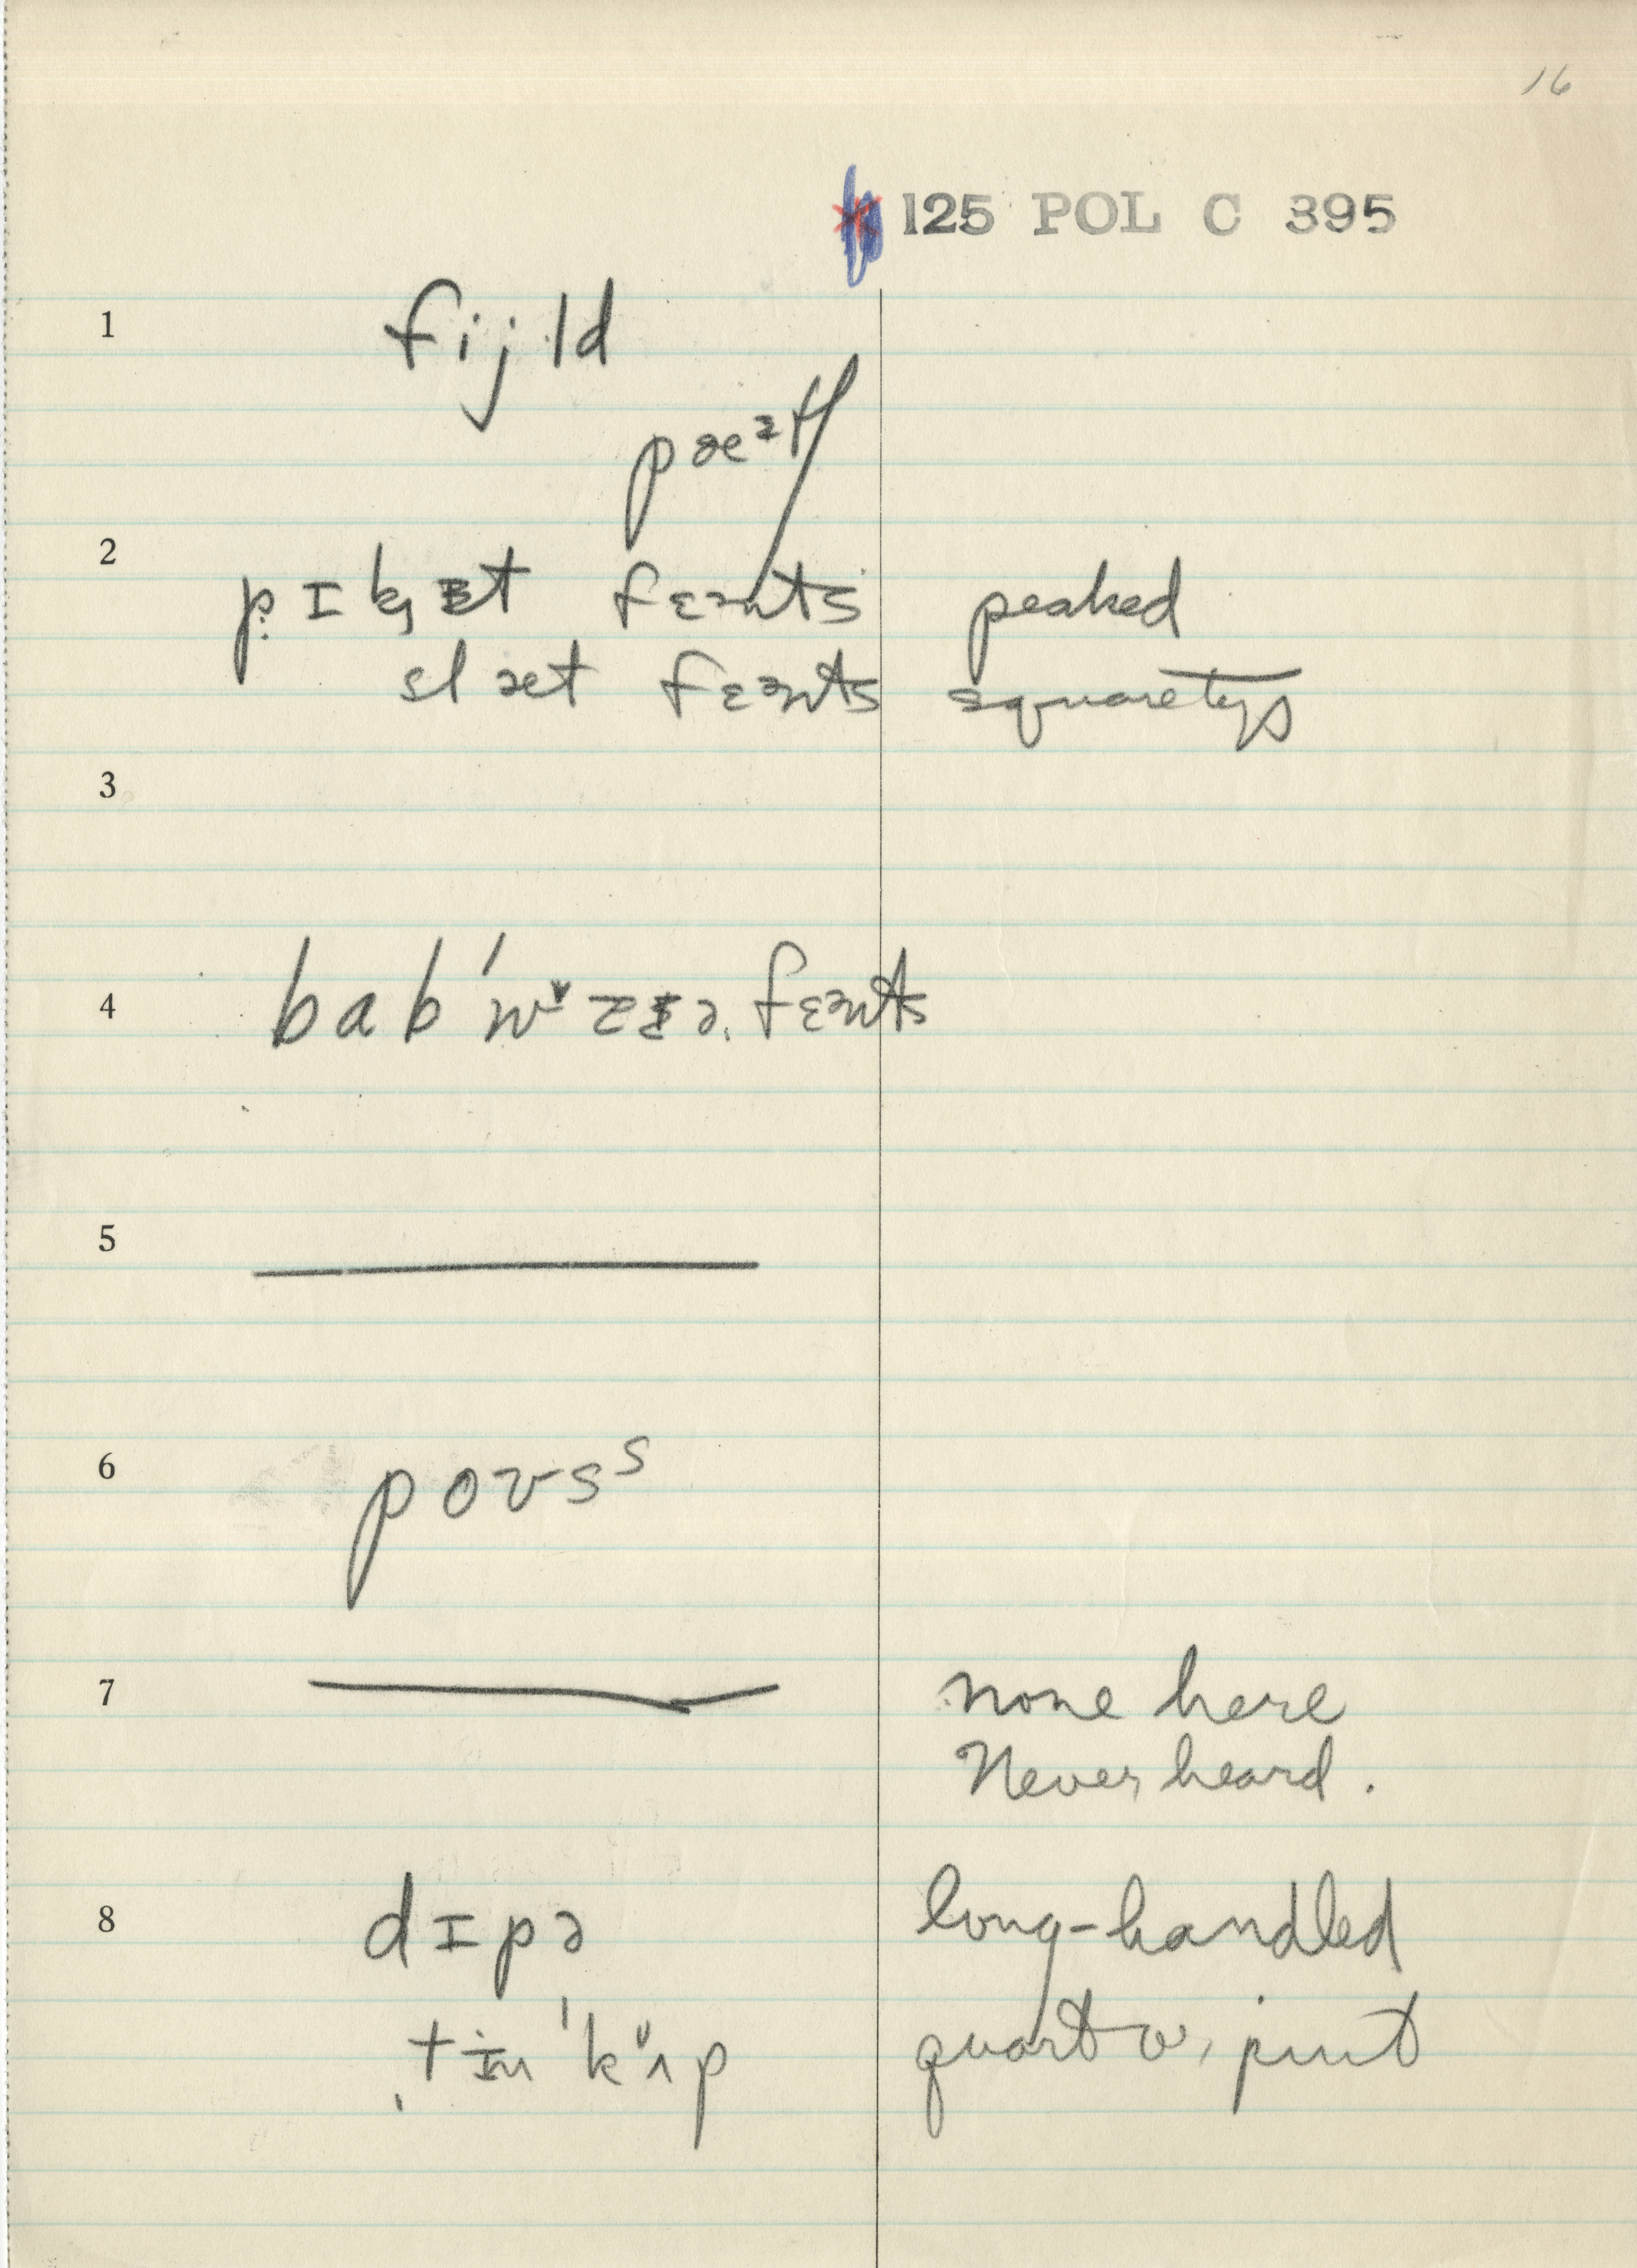 16
125 POL C 395
1 fijld
pæᵊtʃ
2 pɪkɪt fɛənts peaked
slæt fɛənts square tops
3
4 bab'wˇɛɪə fɛənts
5
6 poʊsˢ
7 none here
Never heard.
8 dɪpə long-handled
ˌtɪn 'kʌp quart or pint